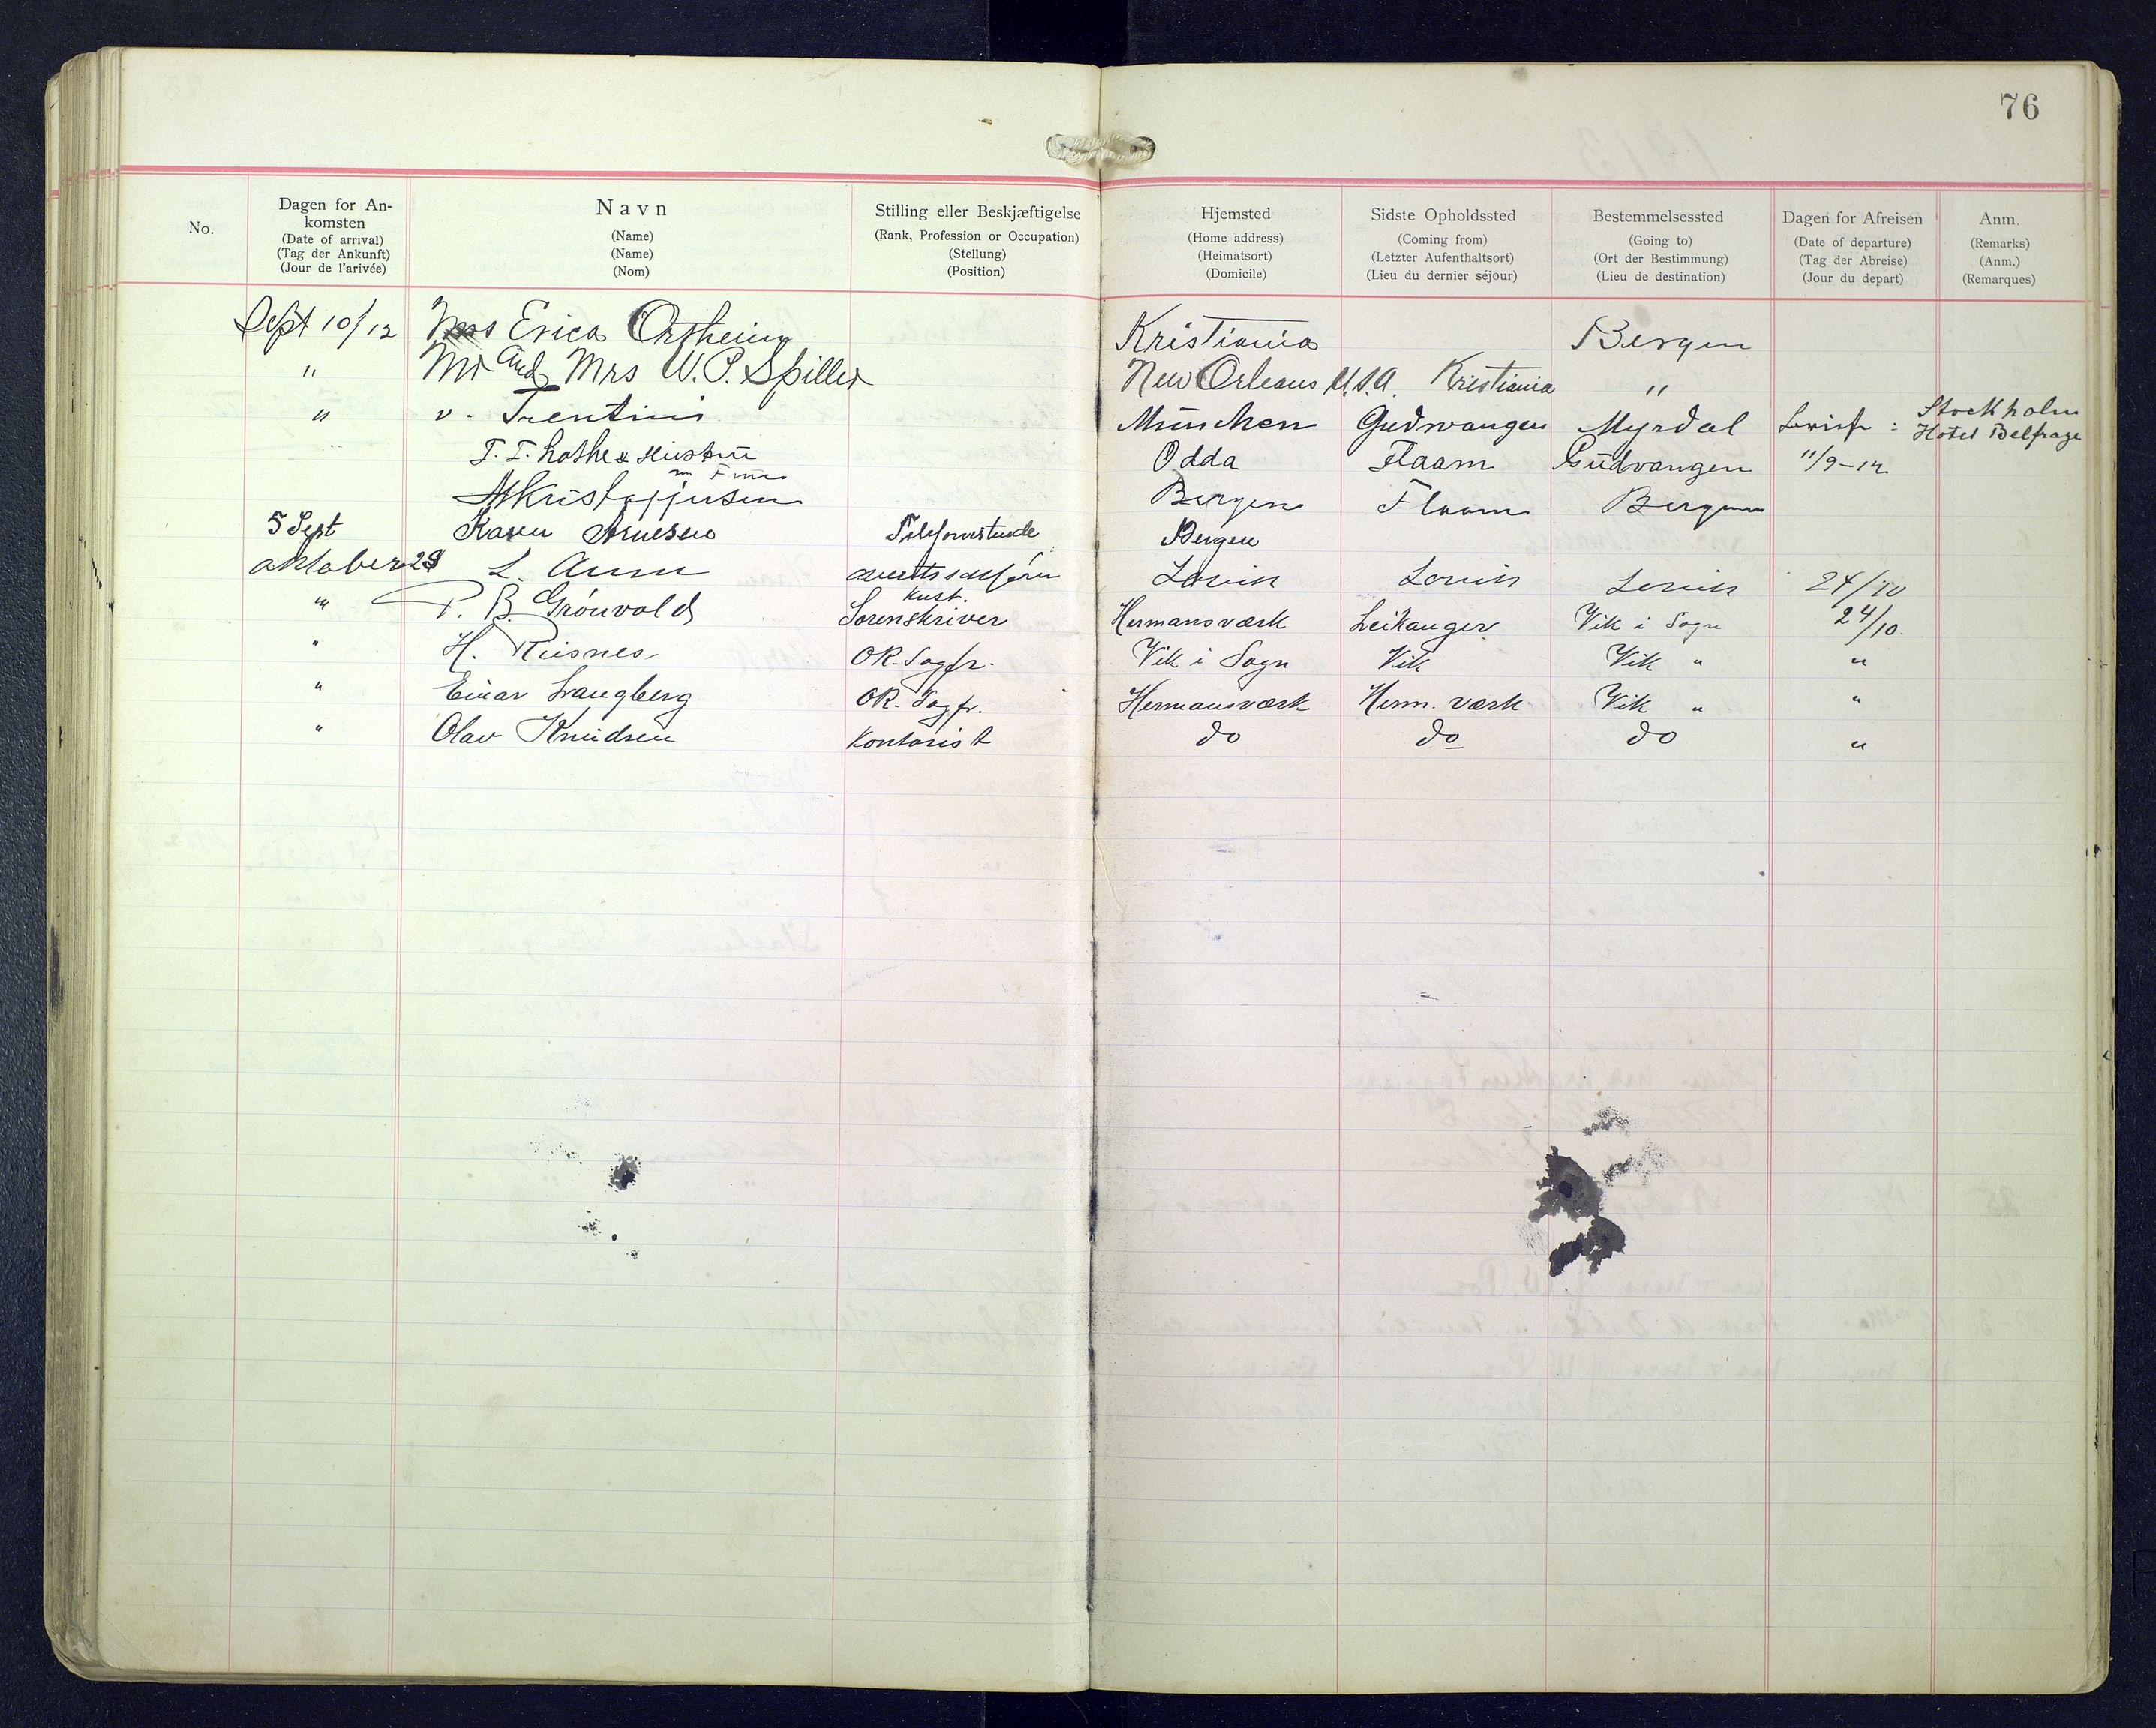 76
No.
Dagen for An-
komsten
(Date of arrival)
(Tag der Ankunft)
(Jour de l'arivée)
Navn
(Name)
(Name)
(Nom)
Stilling eller Beskjæftigelse
(Rank, Profession or Occupation)
(Stellung)
(Position)
Hjemsted
(Home address)
(Heimatsort)
(Domicile)
Sidste Opholdssted
(Coming from)
(Letzter Aufenthaltsort)
(Lieu du dernier séjour)
Bestemmelsessted
(Going to)
(Ort der Bestimmung)
(Lieu de destination)
Dagen for Afreisen
(Date of departure)
(Tag der Abreise)
(Jour du depart)
Anm.
(Remarks)
(Anm.)
(Remarques)
Sept 10/12 Mrs Erica Kristiania Bergen
" Mr and Mrs W. P. Spiller New Orleans U.S.A. Kristiania "
" v. Trentini München Gudvangen Myrdal Stockholm
Hotel Belfrage
T. T. Lothe & Hustru Odda Flaam Gudvangen 11/9-12
m Frue
Kristoffersen Bergen Flaam Bergen
5 Sept Karen Arnesen Bergen
oktober 23 L. 24/10
" P. B. Grönvold kst.
Sorenskriver Hermansværk Leikanger Vik i Sogn 24/10.
" H. Risnes OR. Sagfr. Vik i Sogn Vik Vik " "
" Einar Langberg OR. Sagfr. Hermansværk Herm. værk Vik " "
" Olav Knudsen Kontorist do do do "